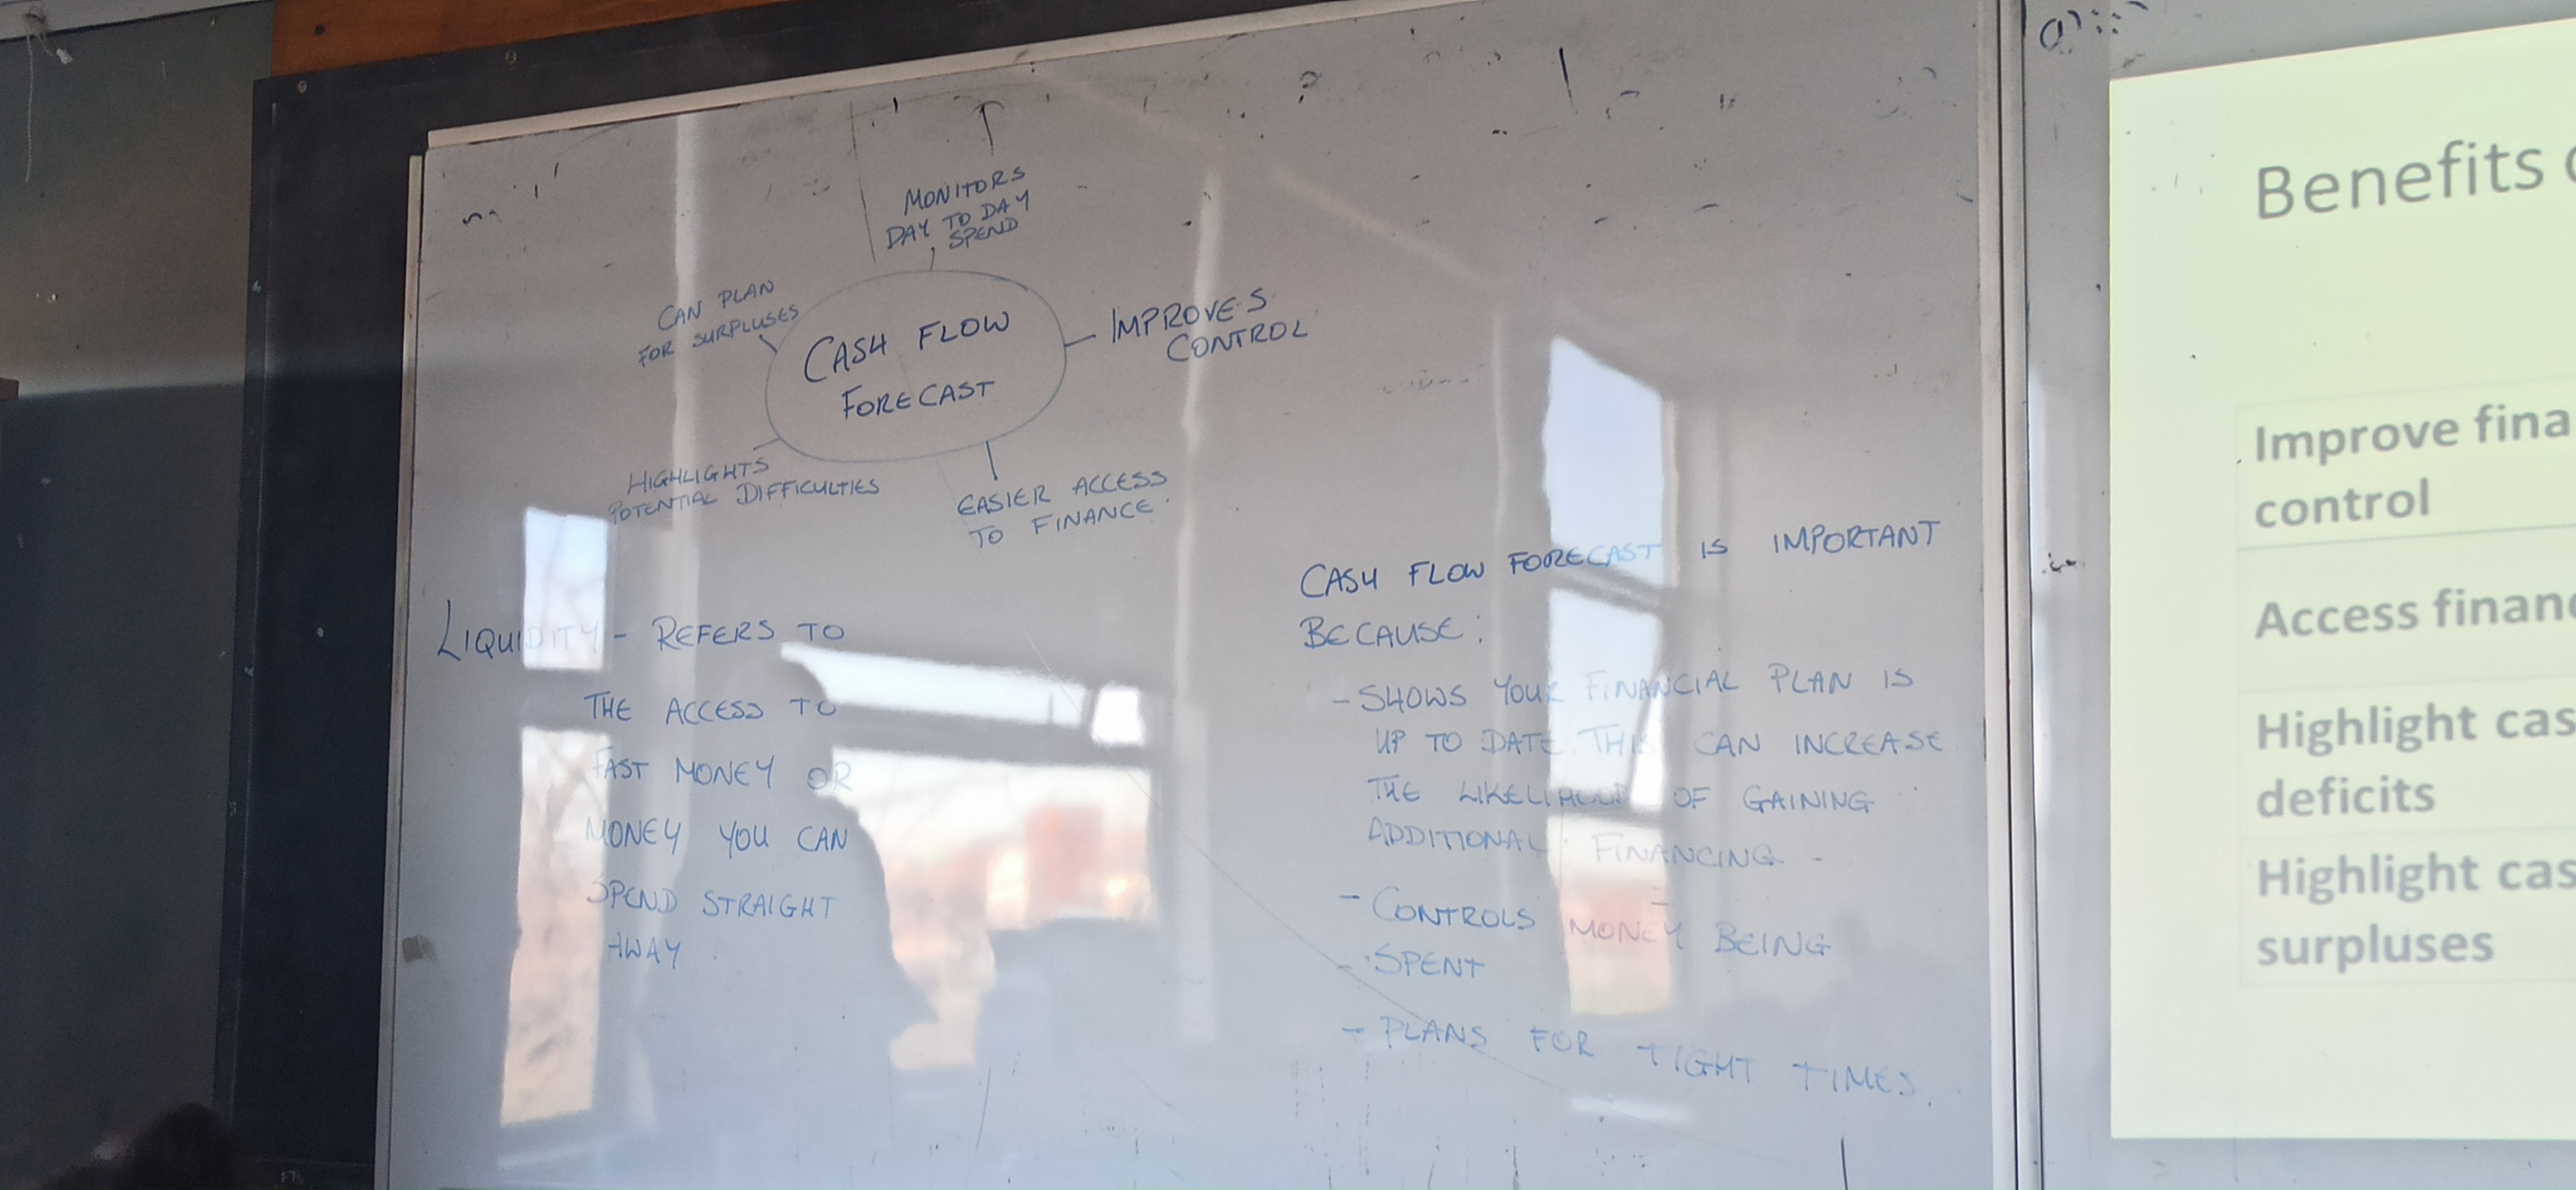 MONITORS
DAY TO DAY
SPEND
CAN PLAN
FOR SURPLUSES
CASH FLOW
FORECAST
IMPROVES
CONTROL
HIGHLIGHTS
POTENTIAL DIFFICULTIES
EASIER ACCESS
TO FINANCE.
LIQUIDITY - REFERS TO
THE ACCESS TO
FAST MONEY OR
MONEY YOU CAN
SPEND STRAIGHT
AWAY.
CASH FLOW FORECAST IS IMPORTANT
BECAUSE:
- SHOWS YOUR FINANCIAL PLAN IS
UP TO DATE. THIS CAN INCREASE
THE LIKELIHOOD OF GAINING
ADDITIONAL FINANCING -
- CONTROLS MONEY BEING
- SPENT
- PLANS FOR TIGHT TIMES.
Benefits
Improve fina
control
Access finan
Highlight cas
deficits
Highlight cas
surpluses